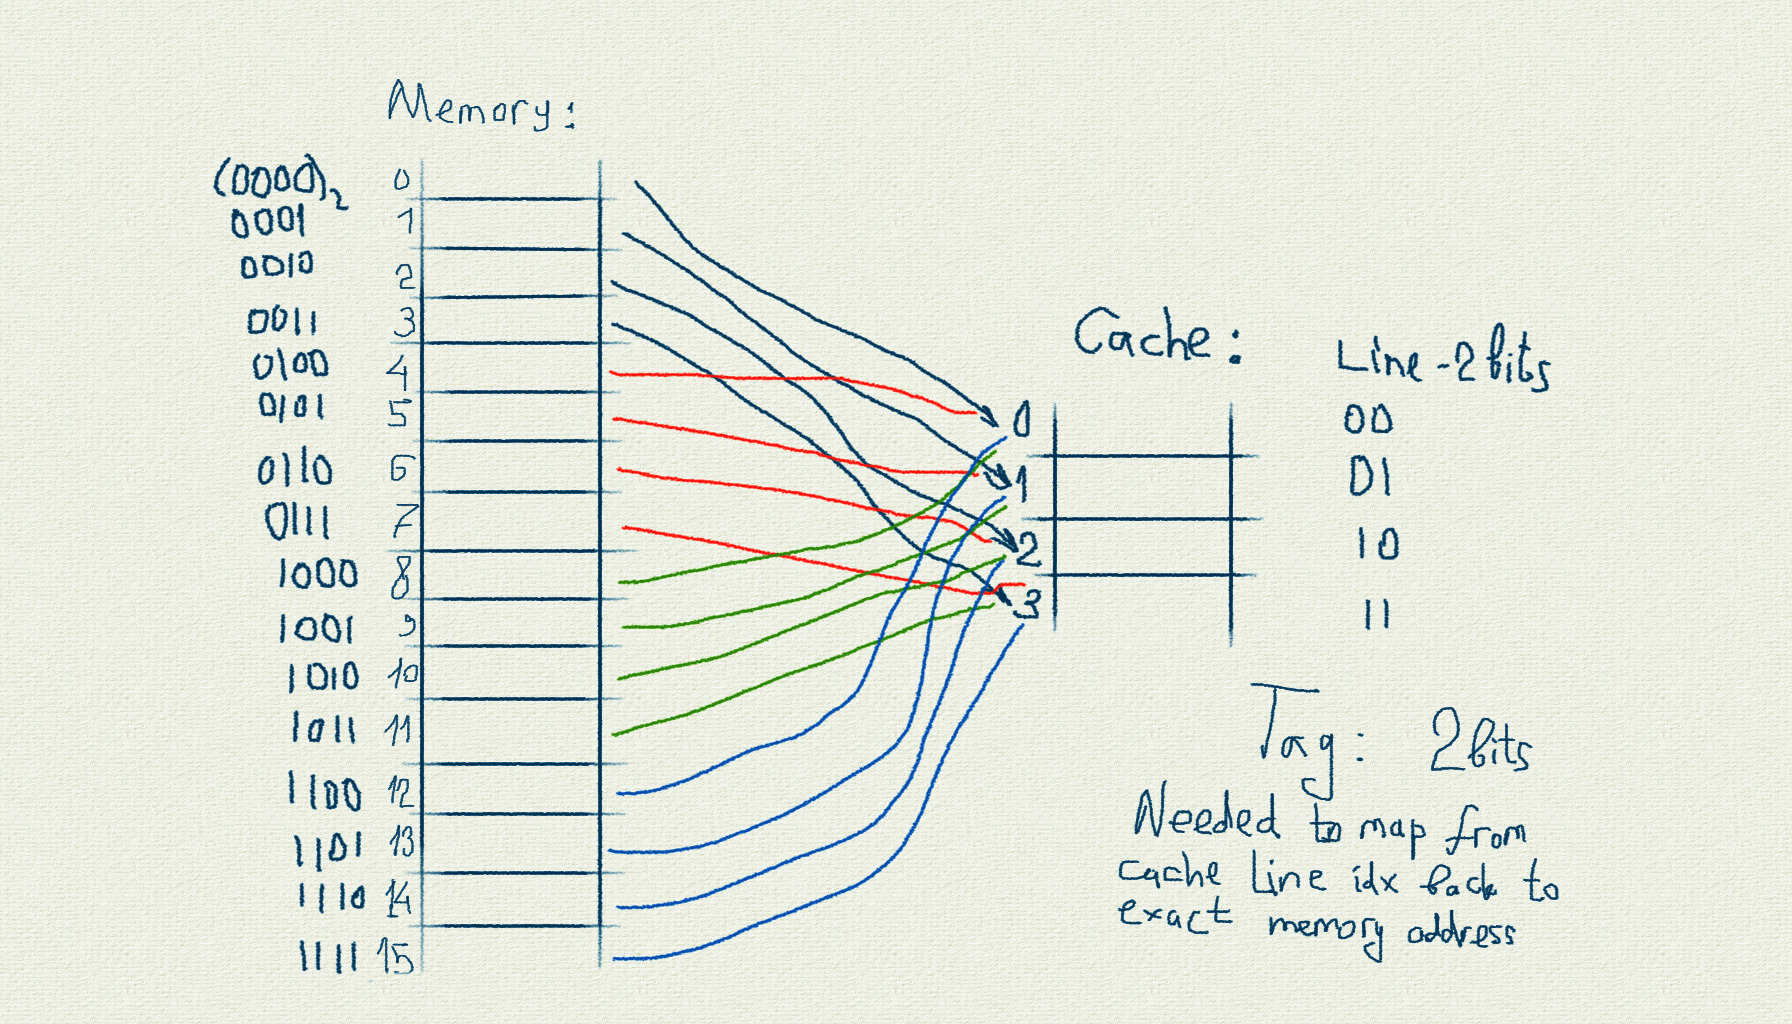 Memory:
(0000)₂ 0
0001 1
0010 2
0011 3
0100 4
0101 5
0110 6
0111 7
1000 8
1001 9
1010 10
1011 11
1100 12
1101 13
1110 14
1111 15
Cache: Line-2bits
0 00
1 01
2 10
3 11
Tag: 2bits
Needed to map from
cache line idx back to
exact memory address